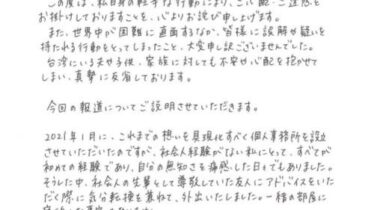 この度は、私自身の軽率な行動により、ご心配・ご迷惑を
お掛けしておりますことを、心よりお詫び申し上げます。
また、世界中が困難に直面するなか、皆様に誤解や疑いを
持たれる行動をとってしまったこと、大変申し訳ございませんでした。
台湾にいる夫や子供、家族に対しても不安や心配を抱かせて
しまい、真摯に反省しております。
今回の報道についてご説明させていただきます。
2021年1月に、これまでの想いを具現化すべく個人事務所を設立
させていただいたのですが、社会人経験がない私にとって、すべてが
初めての経験であり、自分の無知さを痛感した日々でもありました。
そうした中、社会人の先輩として尊敬していた友人にアドバイスをいただ
く際に気分転換を兼ねて、外出いたしました。一緒の部屋に